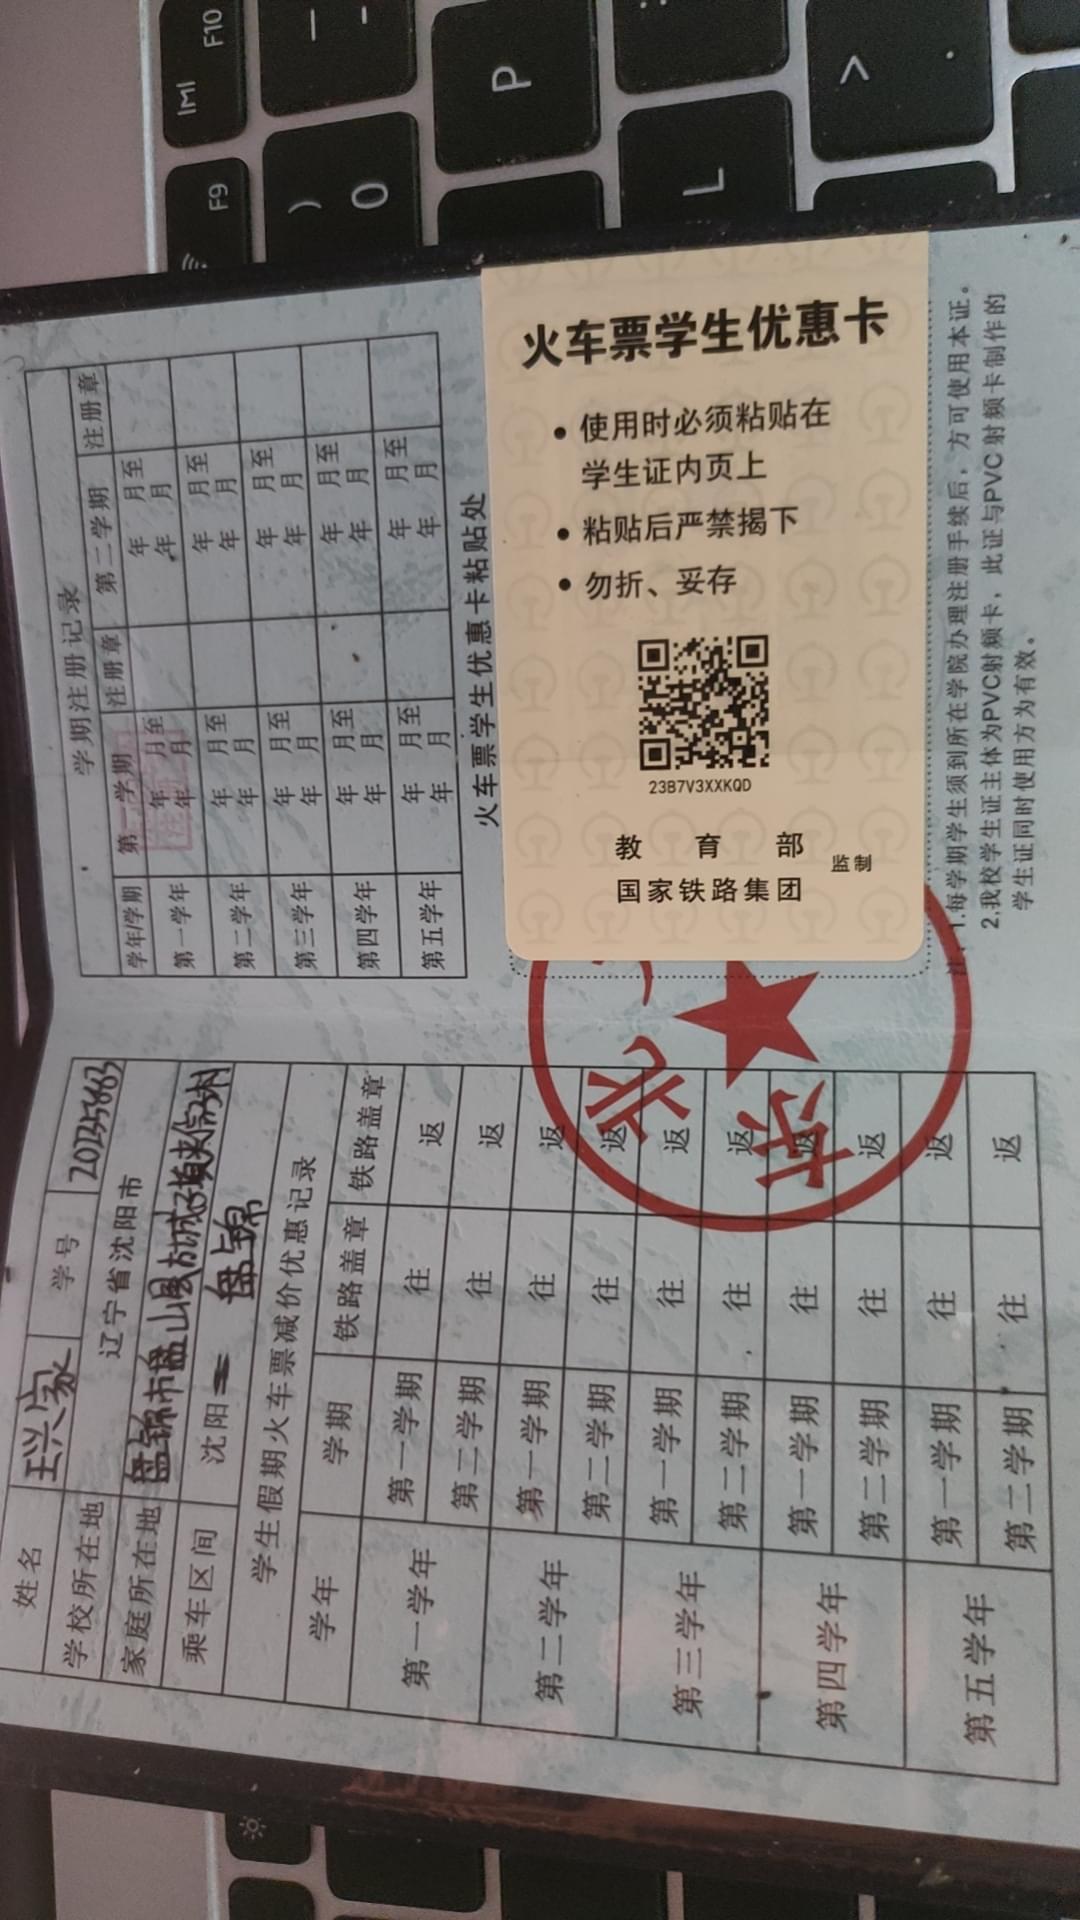 姓名 王兴家 学号 20235663
学校所在地 辽宁省沈阳市
家庭所在地 盘锦市盘山县 村
乘车区间 沈阳 — 盘锦
学生假期火车票减价优惠记录
学年 学期 铁路盖章 铁路盖章
第一学年 第一学期 往 返
第二学期 往 返
第二学年 第一学期 往 返
第二学期 往 返
第三学年 第一学期 往 返
第二学期 往 返
第四学年 第一学期 往 返
第二学期 往 返
第五学年 第一学期 往 返
第二学期 往 返
东北
学期注册记录
学年/学期 第一学期 注册章 第二学期 注册章
第一学年 年 月至 年 月 年 月至 年 月
第二学年 年 月至 年 月 年 月至 年 月
第三学年 年 月至 年 月 年 月至 年 月
第四学年 年 月至 年 月 年 月至 年 月
第五学年 年 月至 年 月 年 月至 年 月
火车票学生优惠卡粘贴处
火车票学生优惠卡
• 使用时必须粘贴在
学生证内页上
• 粘贴后严禁揭下
• 勿折、妥存
23B7V3XXKQD
教育部
国家铁路集团 监制
注：1.每学期学生须到所在学院办理注册手续后，方可使用本证。
2.我校学生证主体为PVC射频卡，此证与PVC射频卡制作的
学生证同时使用方为有效。
F10
F9
P
L
)
0
>
.